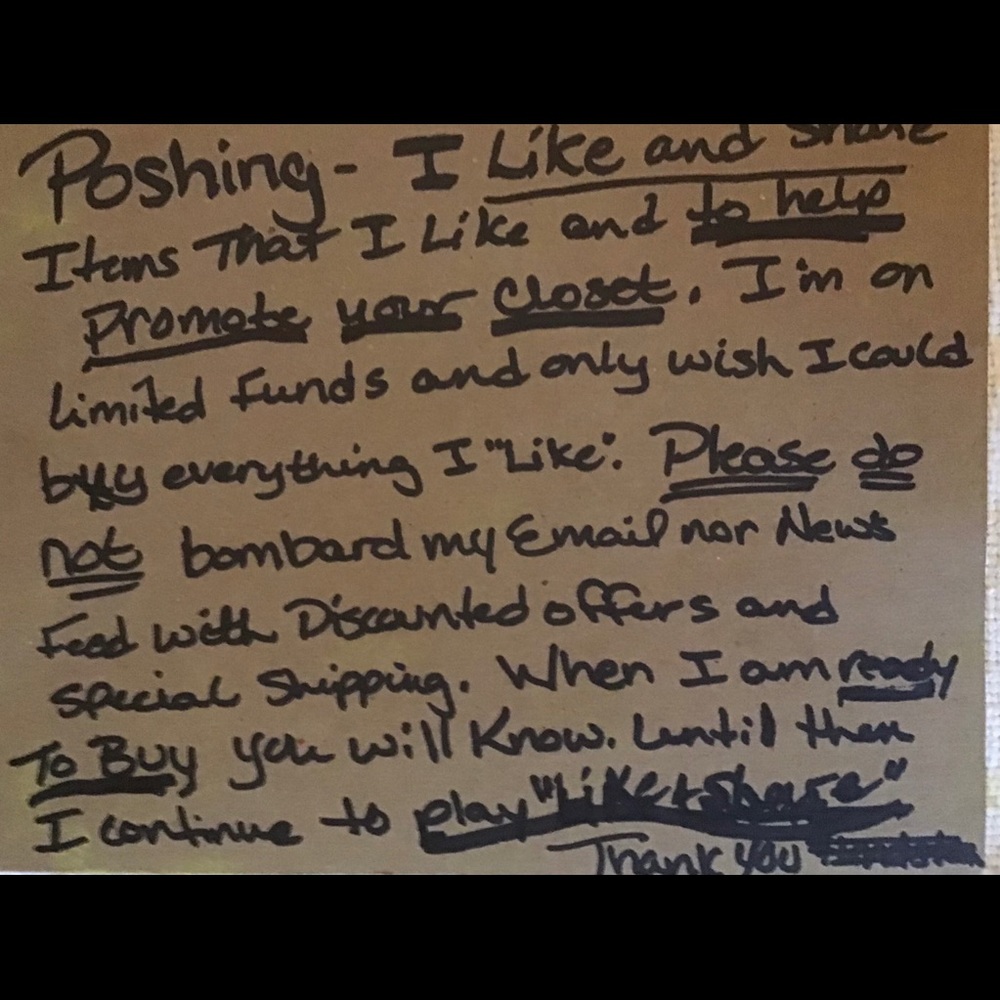 Poshing - I Like and share
Items That I Like and to help
Promote your Closet. I'm on
limited Funds and only wish I could
buy everything I "Like". Please do
not bombard my Email nor News
Feed with Discounted offers and
special Shipping. When I am ready
To Buy you will Know. Until then
I continue to play "Like & Share"
Thank you